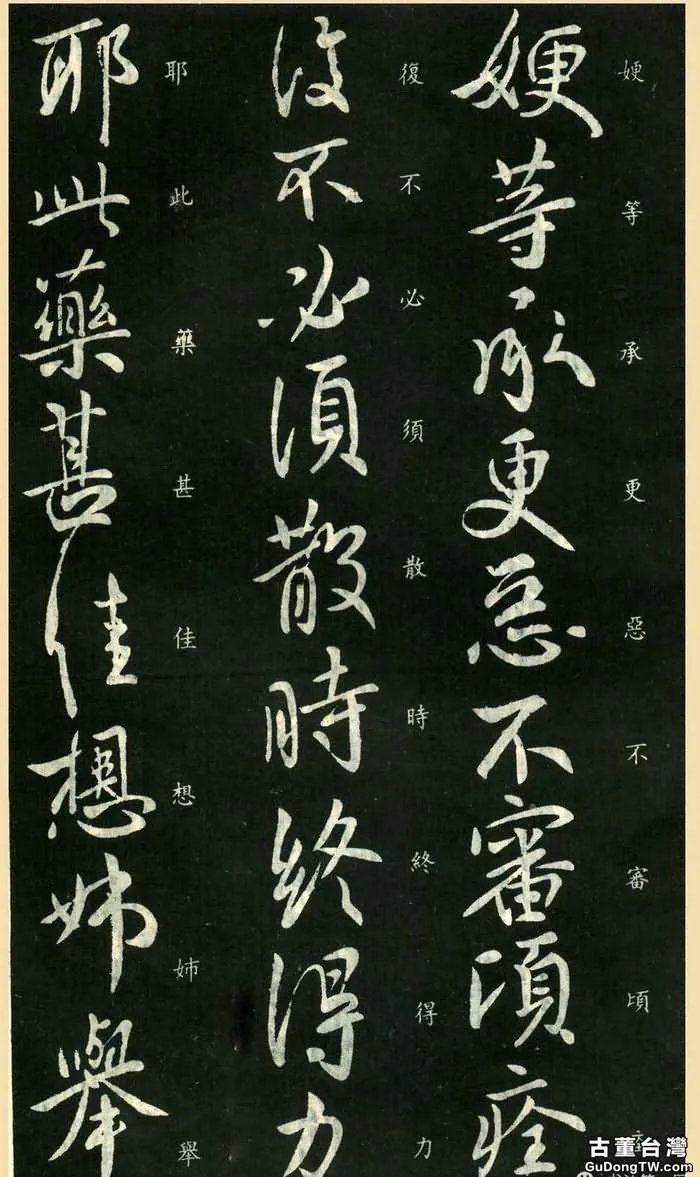 㛐等承更惡不審頃痊
㛐等承更惡不審頃痊
復不必須散時終得力
復不必須散時終得力
耶此藥甚佳想姉舉
耶此藥甚佳想姉舉
古董台灣
GuDongTW.com